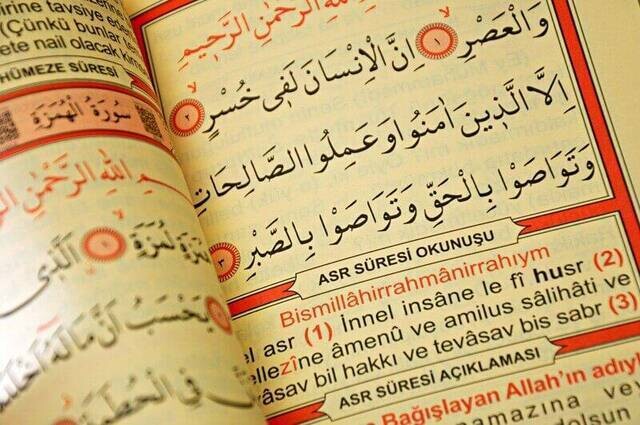 irine tavsiye eder
(Çünkü bunlar
ete nail olacak
HÜMEZE SÛRESİ
سُورَةُ الْهُمَزَةِ
اللهِ الرَّحْمٰنِ
لُمَزَةٍ ١ اَلَّذِى
يَحْسَبُ اَنَّ مَالَهُ
فِى الْحُطَمَةِ
اللهِ الرَّحْمٰنِ الرَّحِيمِ
وَالْعَصْرِ ١ اِنَّ الْاِنْسَانَ لَفِى خُسْرٍ ٢
اِلَّا الَّذِينَ اٰمَنُوا وَعَمِلُوا الصَّالِحَاتِ
وَتَوَاصَوْا بِالْحَقِّ وَتَوَاصَوْا بِالصَّبْرِ ٣
ASR SÛRESİ OKUNUŞU
Bismillâhirrahmânirrahıym
el asr (1) İnnel insâne le fî husr (2)
ellezîne âmenû ve amilus sâlihâti ve
vâsav bil hakkı ve tevâsav bis sabr (3)
ASR SÛRESİ AÇIKLAMASI
Bağışlayan Allah'ın adıyl
namazına ve
dolsun